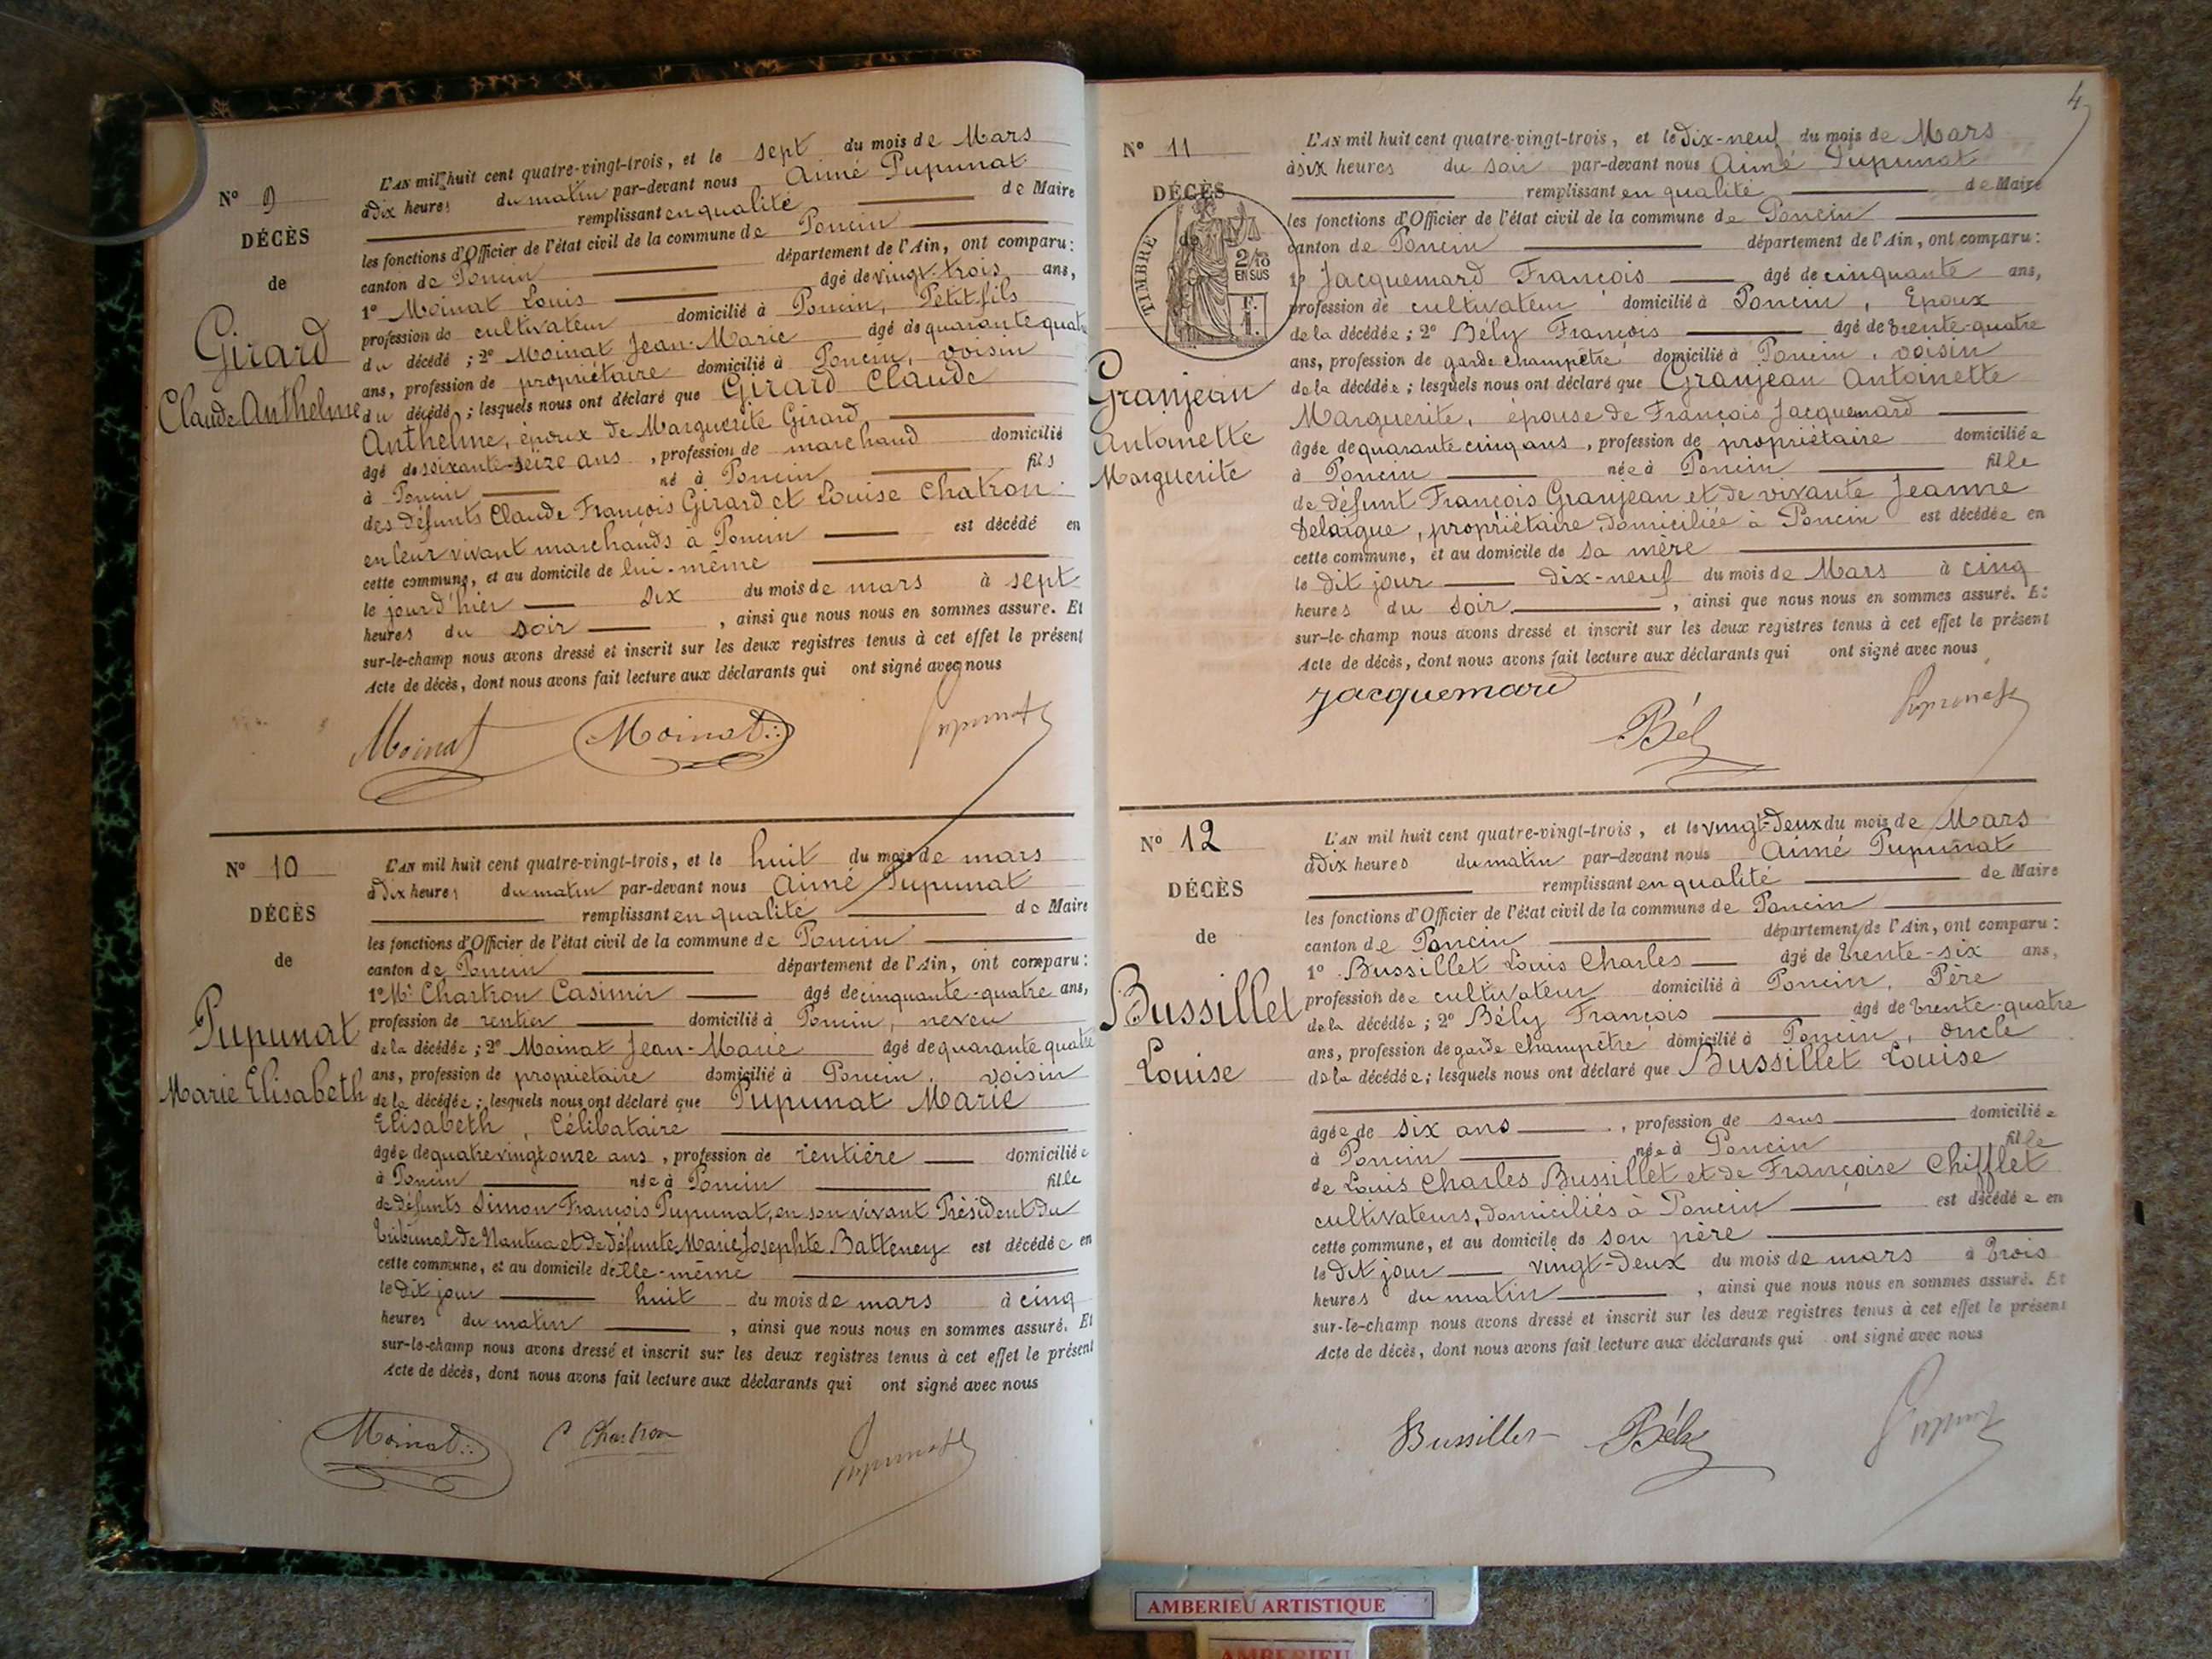 Nº 9
DÉCÈS
de
Girard
Claude Anthelme
L'AN mil huit cent quatre-vingt-trois, et le sept du mois de Mars
à dix heures du matin par-devant nous Aimé Pupunat
remplissant en qualité de Maire
les fonctions d'Officier de l'état civil de la commune de Poncin
canton de Poncin département de l'Ain, ont comparu:
1º Moinat Louis âgé de vingt-trois ans,
profession de cultivateur domicilié à Poncin, Petit fils
du décédé ; 2º Moinat Jean-Marie âgé de quarante quatre
ans, profession de propriétaire domicilié à Poncin, voisin
du décédé ; lesquels nous ont déclaré que Girard Claude
Anthelme, époux de Marguerite Girard
âgé de soixante-seize ans, profession de marchand domicilié
à Poncin né à Poncin fils
des défunts Claude François Girard et Louise Chatron
en leur vivant marchands à Poncin est décédé en
cette commune, et au domicile de lui-même
le jour d'hier six du mois de mars à sept
heures du soir, ainsi que nous nous en sommes assuré. Et
sur-le-champ nous avons dressé et inscrit sur les deux registres tenus à cet effet le présent
Acte de décès, dont nous avons fait lecture aux déclarants qui ont signé avec nous
Moinat Moinat Pupunat
Nº 10
DÉCÈS
de
Pupunat
Marie Elisabeth
L'AN mil huit cent quatre-vingt-trois, et le huit du mois de mars
à dix heures du matin par-devant nous Aimé Pupunat
remplissant en qualité de Maire
les fonctions d'Officier de l'état civil de la commune de Poncin
canton de Poncin département de l'Ain, ont comparu:
1º Mr Chartron Casimir âgé de cinquante-quatre ans,
profession de rentier domicilié à Poncin, neveu
de la décédée ; 2º Moinat Jean-Marie âgé de quarante quatre
ans, profession de propriétaire domicilié à Poncin, voisin
de la décédée ; lesquels nous ont déclaré que Pupunat Marie
Elisabeth, Célibataire
âgée de quatre vingt onze ans, profession de rentière domiciliée
à Poncin née à Poncin fille
de défunts Simon François Pupunat, en son vivant Président du
tribunal de Nantua et de défunte Marie Josephte Batteney est décédée en
cette commune, et au domicile d'elle-même
le dit jour huit du mois de mars à cinq
heures du matin, ainsi que nous nous en sommes assuré. Et
sur-le-champ nous avons dressé et inscrit sur les deux registres tenus à cet effet le présent
Acte de décès, dont nous avons fait lecture aux déclarants qui ont signé avec nous
Moinat C Chartron Pupunat
4
Nº 11
DÉCÈS
de
TIMBRE
2/10
EN SUS
F.
1.
Granjean
Antoinette
Marguerite
L'AN mil huit cent quatre-vingt-trois, et le dix-neuf du mois de Mars
à six heures du soir par-devant nous Aimé Pupunat
remplissant en qualité de Maire
les fonctions d'Officier de l'état civil de la commune de Poncin
canton de Poncin département de l'Ain, ont comparu:
1º Jacquemard François âgé de cinquante ans,
profession de cultivateur domicilié à Poncin, Epoux
de la décédée ; 2º Bély François âgé de trente-quatre
ans, profession de garde champêtre domicilié à Poncin, voisin
de la décédée ; lesquels nous ont déclaré que Granjean Antoinette
Marguerite, épouse de François Jacquemard
âgée de quarante cinq ans, profession de propriétaire domiciliée
à Poncin née à Poncin fille
de défunt François Granjean et de vivante Jeanne
Delaigue, propriétaire, domiciliée à Poncin est décédée en
cette commune, et au domicile de sa mère
le dit jour dix-neuf du mois de Mars à cinq
heures du soir, ainsi que nous nous en sommes assuré. Et
sur-le-champ nous avons dressé et inscrit sur les deux registres tenus à cet effet le présent
Acte de décès, dont nous avons fait lecture aux déclarants qui ont signé avec nous
Jacquemard Bély Pupunat
Nº 12
DÉCÈS
de
Bussillet
Louise
L'AN mil huit cent quatre-vingt-trois, et le vingt-deux du mois de Mars
à dix heures du matin par-devant nous Aimé Pupunat
remplissant en qualité de Maire
les fonctions d'Officier de l'état civil de la commune de Poncin
canton de Poncin département de l'Ain, ont comparu:
1º Bussillet Louis Charles âgé de trente-six ans,
profession de cultivateur domicilié à Poncin, Père
de la décédée ; 2º Bély François âgé de trente-quatre
ans, profession de garde champêtre domicilié à Poncin, oncle
de la décédée ; lesquels nous ont déclaré que Bussillet Louise
âgée de six ans, profession de sans domiciliée
à Poncin née à Poncin fille
de Louis Charles Bussillet et de Françoise Chifflet
cultivateurs, domiciliés à Poncin est décédée en
cette commune, et au domicile de son père
le dit jour vingt-deux du mois de mars à trois
heures du matin, ainsi que nous nous en sommes assuré. Et
sur-le-champ nous avons dressé et inscrit sur les deux registres tenus à cet effet le présent
Acte de décès, dont nous avons fait lecture aux déclarants qui ont signé avec nous
Bussillet Bély Pupunat
AMBERIEU ARTISTIQUE
AMBERIEU